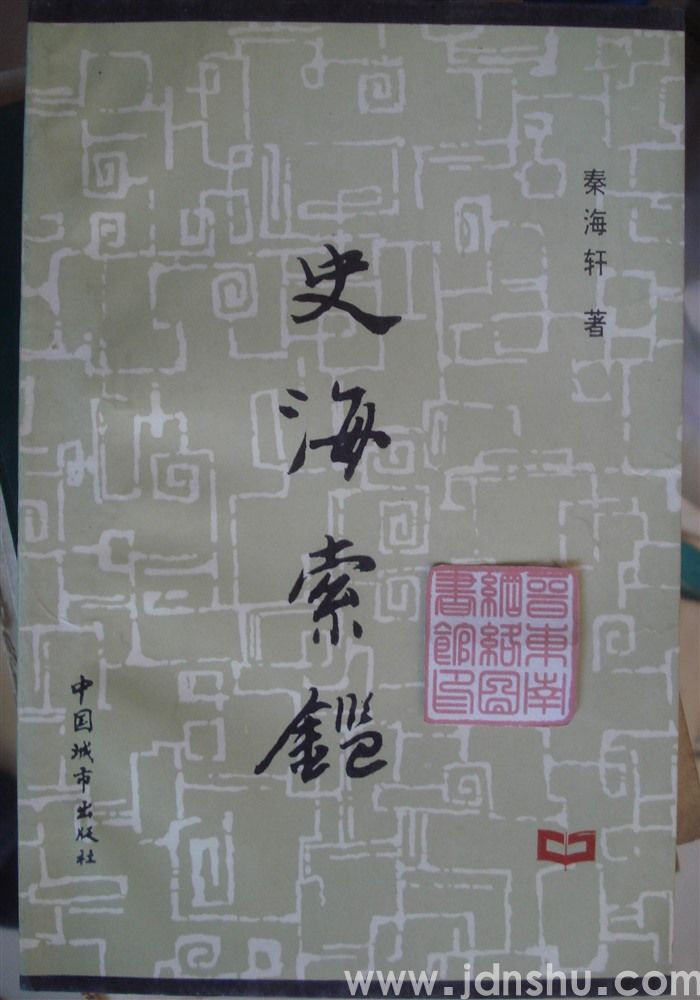 秦海轩 著
史海索鑑
晋東南
網絡図
書館印
中国城市出版社
www.jdnshu.com